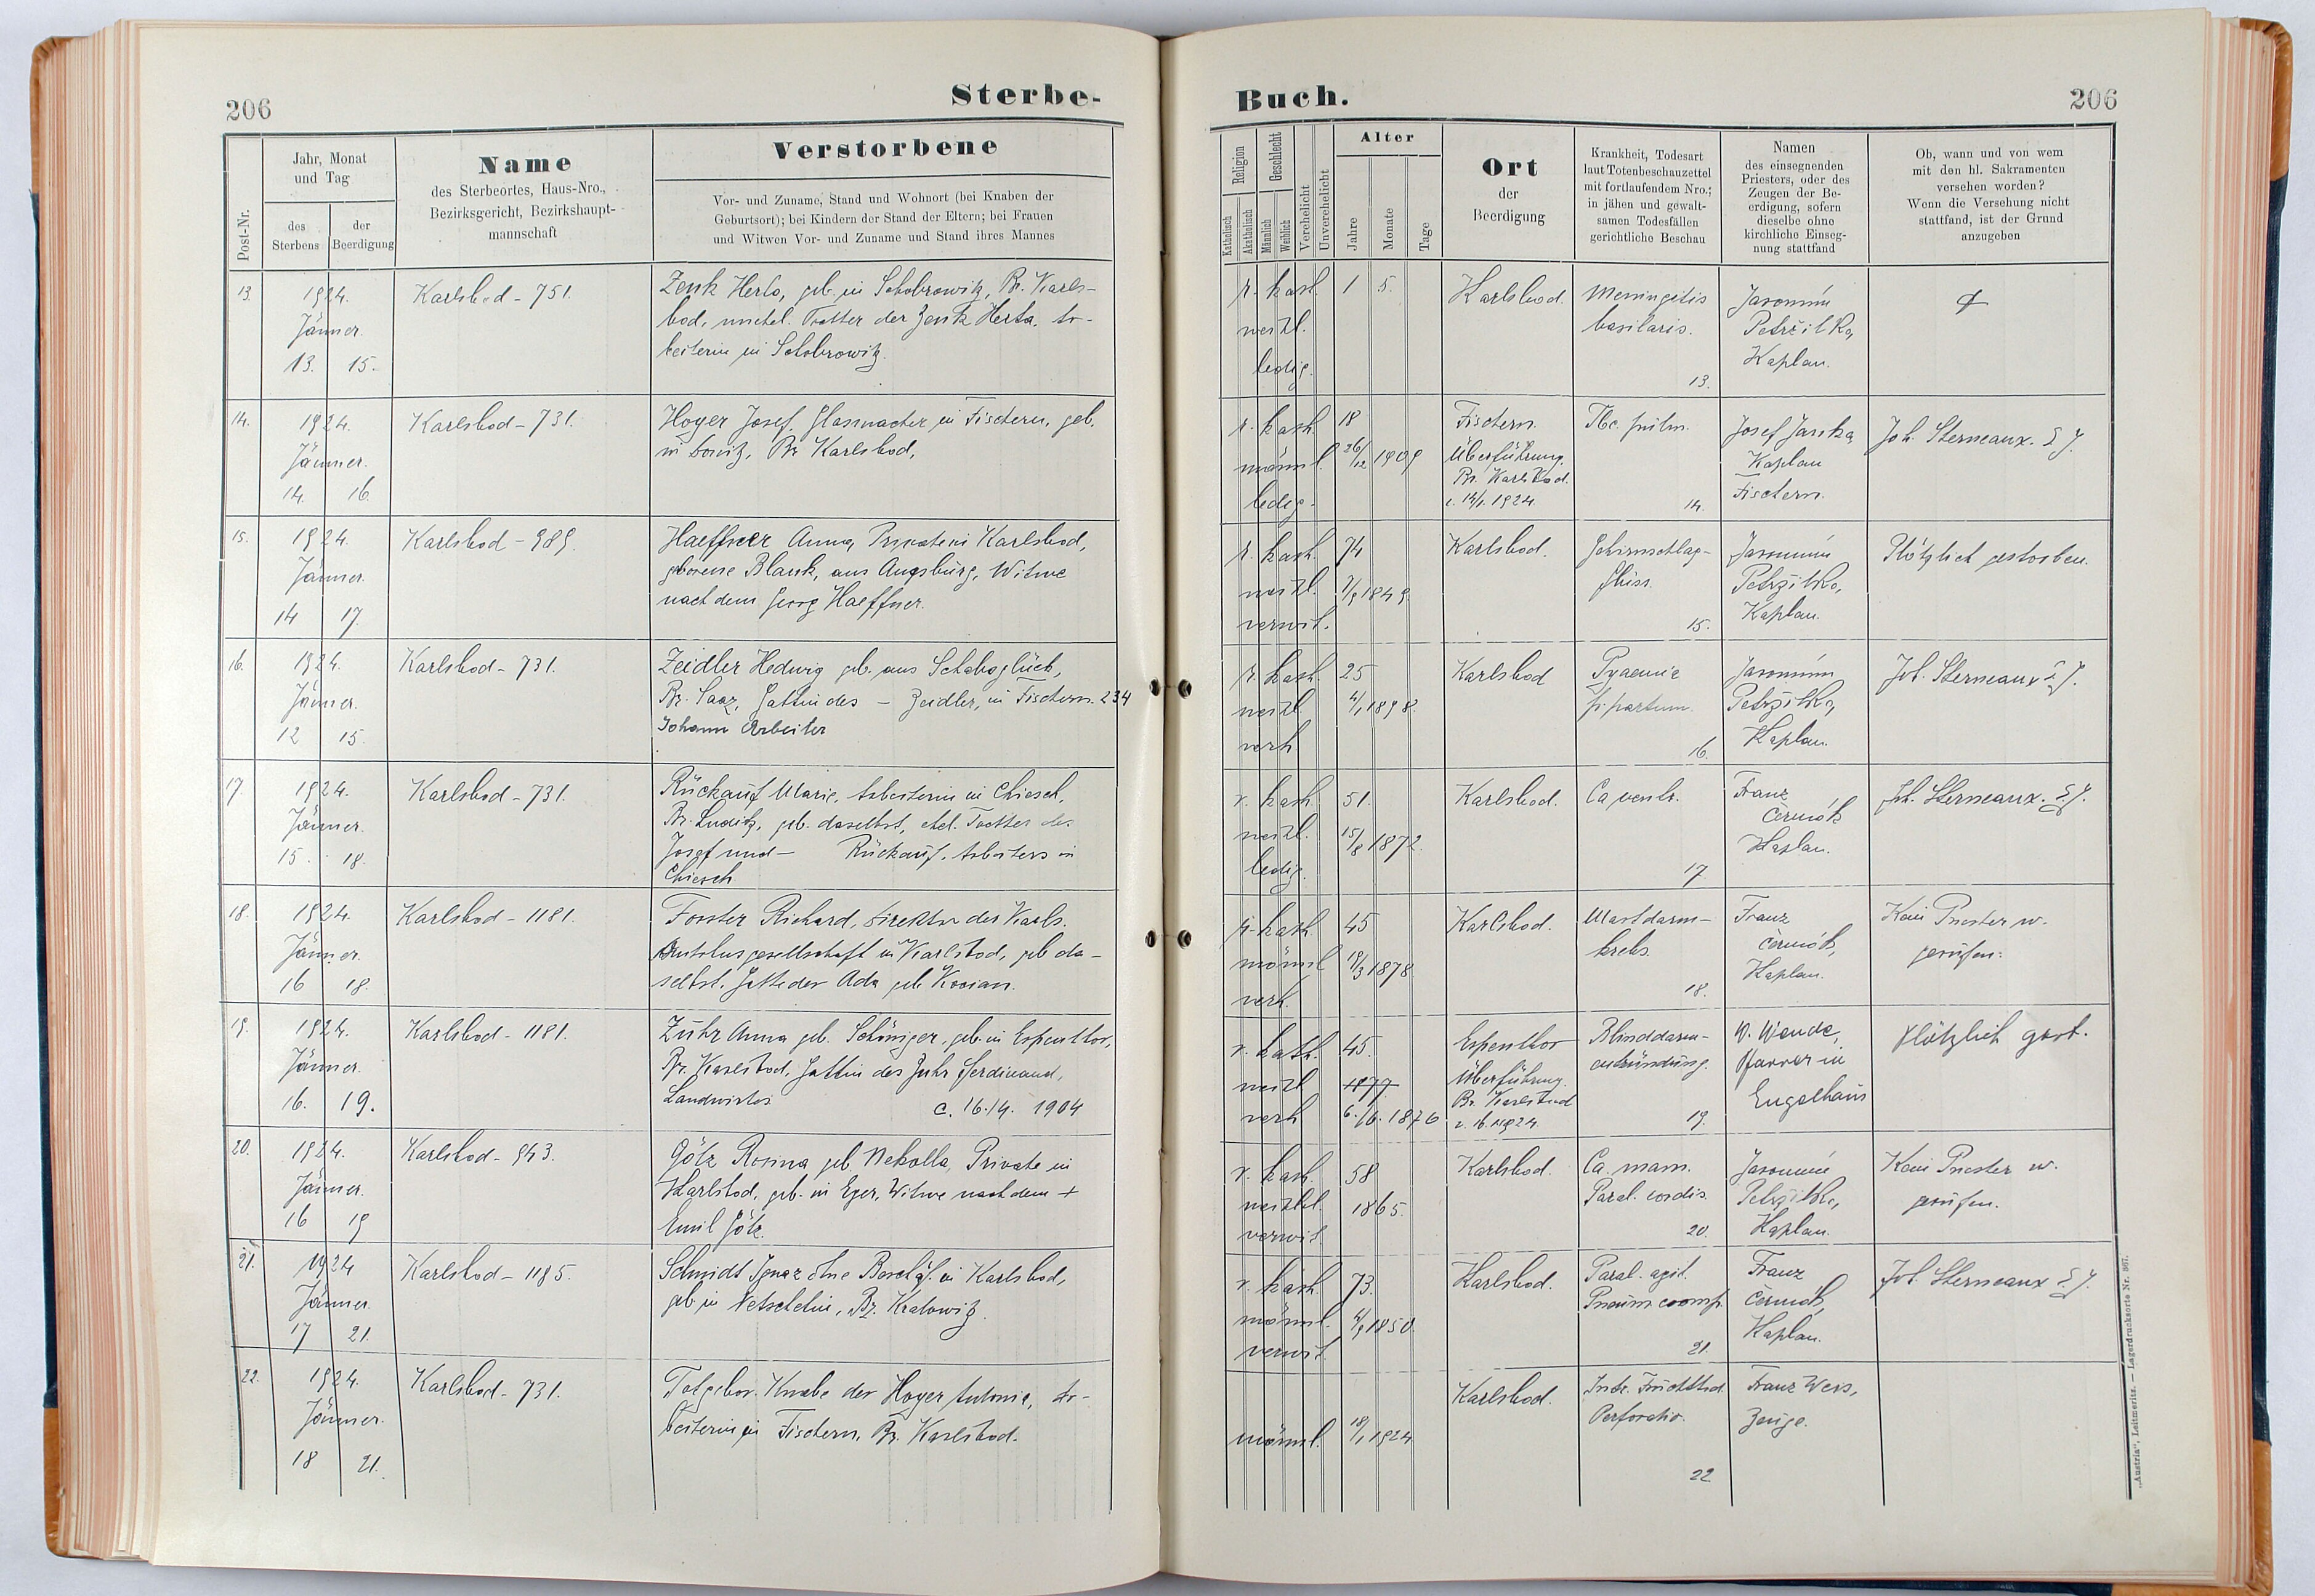 206
Sterbe-
Buch.
206
Post-Nr.
Jahr, Monat
und Tag
des
Sterbens
der
Beerdigung
Name
des Sterbeortes, Haus-Nro.,
Bezirksgericht, Bezirkshaupt-
mannschaft
Verstorbene
Vor- und Zuname, Stand und Wohnort (bei Knaben der
Geburtsort); bei Kindern der Stand der Eltern; bei Frauen
und Witwen Vor- und Zuname und Stand ihres Mannes
Religion
Katholisch
Akatholisch
Geschlecht
Männlich
Weiblich
Verehelicht
Unverehelicht
Alter
Jahre
Monate
Tage
Ort
der
Beerdigung
Krankheit, Todesart
laut Totenbeschauzettel
mit fortlaufendem Nro.;
in jähen und gewalt-
samen Todesfällen
gerichtliche Beschau
Namen
des einsegnenden
Priesters, oder des
Zeugen der Be-
erdigung, sofern
dieselbe ohne
kirchliche Einseg-
nung stattfand
Ob, wann und von wem
mit den hl. Sakramenten
versehen worden?
Wenn die Versehung nicht
stattfand, ist der Grund
anzugeben
13.
1924.
Jänner.
13. 15.
Karlsbad - 751.
Zenk Herta, geb. in Schobrowitz, Bz. Karls-
bad, unehel. Tochter der Zenk Herta, Ar-
beiterin in Schobrowitz.
r. kath.
weibl.
ledig.
1 5.
Karlsbad.
Meningitis
basilaris.
13.
Jaromím
Petržilka,
Kaplan.
14.
1924.
Jänner.
14. 16.
Karlsbad - 731.
Hoyer Josef, Glasmacher in Fischern, geb.
in Donitz, Bz Karlsbad,
r. kath.
männl.
ledig.
18
26/12 1909
Fischern.
Überführung.
Bz. Karlsbad.
v. 14/1. 1924.
Tbc. pulm.
14.
Josef Janka
Kaplan
Fischern.
Joh. Sterneaux. S. J.
15.
1924.
Jänner.
14 17.
Karlsbad - 989.
Haeffner Anna, Private in Karlsbad,
geborene Blank, aus Augsburg, Witwe
nach dem Georg Haeffner.
r. kath.
weibl.
verwit.
74
7/9 1849.
Karlsbad.
Gehirnschlag-
fluss.
15.
Jaromím
Petržilka,
Kaplan.
Plötzlich gestorben.
16.
1924.
Jänner.
12 15.
Karlsbad - 731.
Zeidler Hedwig geb. aus Schaboglück,
Bz. Saaz, Gattin des — Zeidler, in Fischern. 234
Johann Arbeiter
r. kath.
weibl.
verh
25
4/1 1898.
Karlsbad
Pyaemie
p. partum.
16.
Jaromím
Petržilka,
Kaplan.
Joh. Sterneaux S. J.
17.
1924.
Jänner.
15. 18.
Karlsbad - 731.
Rückauf Marie, Arbeiterin in Chiesch,
Bz. Luditz, geb. daselbst, ehel. Tochter des
Josef und — Rückauf, Arbeiters in
Chiesch
r. kath.
weibl.
ledig.
51.
15/8 1872.
Karlsbad.
Ca ventr.
17.
Franz
Čermák
Kaplan.
Joh. Sterneaux. S. J.
18.
1924.
Jänner.
16 18.
Karlsbad - 1181.
Forster Richard, Direktor der Karls.
Autobusgesellschaft in Karlsbad, geb. da-
selbst. Gatte der Ada geb.
r. kath.
männl
verh.
45
19/3 1878
Karlsbad.
Mastdarm-
krebs.
18.
Franz
Čermák,
Kaplan.
Kein Priester w.
gerufen.
19.
1924.
Jänner.
16. 19.
Karlsbad - 1181.
Zuhr Anna geb. Schöniger, geb. in Espenthor,
Bz. Karlsbad, Gattin des Zuhr Ferdinand,
Landwirtes c. 16./4. 1904
r. kath.
weibl
verh
45.
1877
6./6. 1876
Espenthor
Überführung.
Bz. Karlsbad
v. 16. 1. 1924.
Blinddarm-
entzündung.
19.
W. Wende,
Pfarrer in
Engelhaus
Plötzlich gest.
20.
1924.
Jänner.
16 19
Karlsbad - 943.
Götz Rosina geb. Nekolla, Private in
Karlsbad, geb. in Eger, Witwe nach dem +
Emil Götz.
r. kath.
weibl.
verwit
58
1865.
Karlsbad.
Ca. mam.
Paral. cordis.
20.
Jaromím
Petržilka,
Kaplan.
Kein Priester w.
gerufen.
21.
1924
Jänner
17 21.
Karlsbad - 1185.
Schmidt Ignaz ohne Beschäf. in Karlsbad,
geb. in Netschetin, Bz. Kralowitz.
r. kath.
männl.
verwit.
73.
4/9 1850.
Karlsbad.
Paral. agit.
Pneum
21.
Franz
Čermák,
Kaplan.
Joh. Sterneaux S. J.
22.
1924.
Jänner.
18 21.
Karlsbad - 731.
Totgebor. Knabe der Hoyer Antonie, Ar-
beiterin in Fischern, Bz. Karlsbad.
männl.
18/1 1924
Karlsbad.
Intr. Fruchttod.
Perforatio.
22
Franz Weis,
Zeuge.
„Austria“, Leitmeritz. — Lagerdrucksorte Nr. 367.